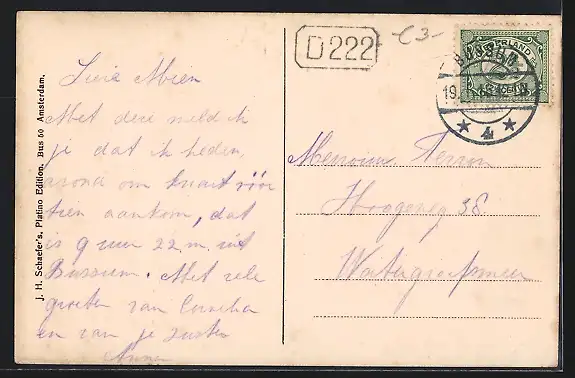 D 222
C3-
BUSSUM
19.
4
NEDERLAND
2½ CENT
Lieve Mien
Met deze meld ik
je dat ik heden
avond om kwart voor
tien aankom, dat
is 9 uur 22 m. uit
Bussum. Met vele
groeten van Cornelia
en van je zuster
Anna
Mevrouw
Hoogeweg 38
Watergraafsmeer
J. H. Schaefer's, Platino Edition, Bus 50 Amsterdam.